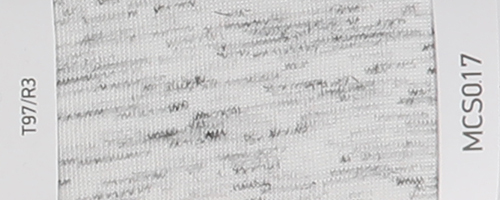 T97/R3
MCS017